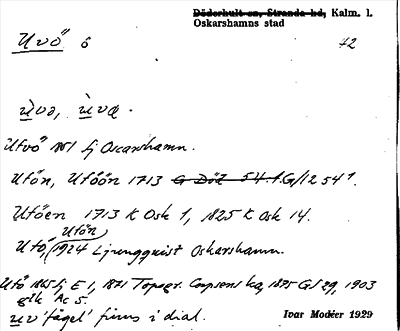 Döderhult sn, Stranda hd, Kalm. l.
Oskarshamns stad
Uvö ö 42
ùvə, ùvα.
Utfvö 1851 fj Oscarshamn.
Utön, Utöön 1713 G Död 54:1. G/12 54¹.
Utöen 1713 K Osk 1, 1825 K Osk 14.
Utön
Utö, 1924 Ljungquist Oskarshamn.
Utö 1865 fj E 1, 1871 Topogr. 1895 G/29, 1903
glk Ac 5.
uv 'fågel' finns i dial.
Ivar Modéer 1929